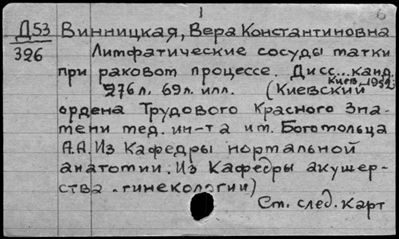 1
6
Д53
326
Винницкая, Вера Константиновна
Лимфатические сосуды матки
при раковом процессе. Дисс... канд.
Киев, 1952.
276л. 69л. илл. (Киевский
ордена Трудового Красного Зна-
мени мед. ин-та им. Богомольца
А.А. Из Кафедры нормальной
анатомии. Из Кафедры акушер-
ства - гинекологии)
См. след. карт